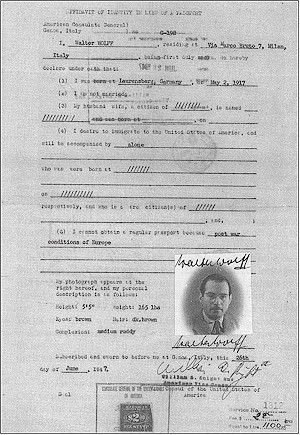 AFFIDAVIT OF IDENTITY IN LIEU OF A PASSPORT
American Consulate General)
Genoa, Italy
C-198
I, Walter WOLFF, residing at Via Marco Bruno 7, Milan,
Italy, being first duly sworn, do hereby
declare under oath that:
(1) I was born at Laurensberg, Germany, on May 2, 1917
(2) I am not married;
(3) My husband wife, a citizen of ///////, is named
and was born at on
(4) I desire to immigrate to the United States of America, and
will be accompanied by alone
who was born at //////
on //////////
respectively, and who is a are citizen(s) of //////
, and;
(4) I cannot obtain a regular passport because post war
conditions of Europe
My photograph appears at the
right hereof, and my personal
description is as follows:
Height: 5'5" Weight: 165 lbs
Eyes: brown Hair: dk.brown
Complexion: medium ruddy
Walter Wolff
Walter Wolff
Subscribed and sworn to before me at Genoa, Italy, this 26th
day of June, 1947.
William B. Knight
American Vice Consul
Consul of the United States of
America
Seal
$2
Service No.